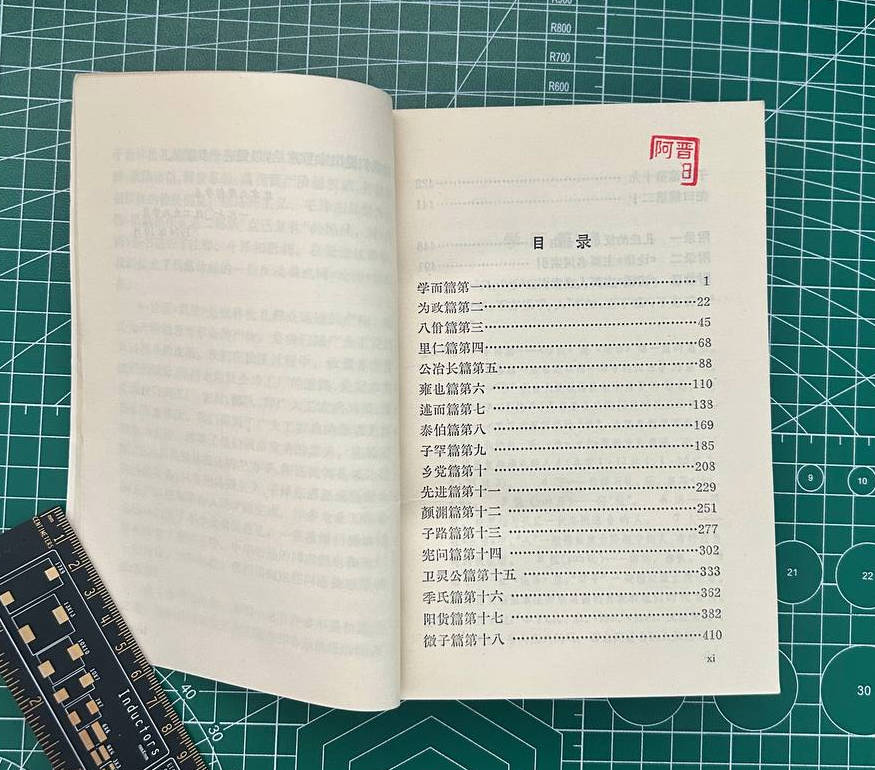 R800
R700
R600
阿晋
日
目 录
学而篇第一 1
为政篇第二 22
八佾篇第三 45
里仁篇第四 68
公冶长篇第五 88
雍也篇第六 110
述而篇第七 138
泰伯篇第八 169
子罕篇第九 185
乡党篇第十 208
先进篇第十一 229
颜渊篇第十二 251
子路篇第十三 277
宪问篇第十四 302
卫灵公篇第十五 333
季氏篇第十六 362
阳货篇第十七 382
微子篇第十八 410
xi
9
10
21
22
30
40
30
CENTIMETERS
1
2
3
4
5
6
7
8
9
2
Inductors